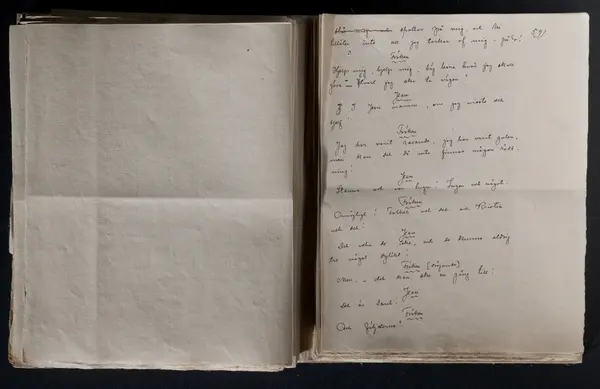 spottar på mig, och Ni 59/
tillåter inte att jag torkar af mig – på er!
Fröken
Hjelp mig, hjelp mig, säg bara hvad jag skall
göra – Hvart jag ska ta vägen?
Jean
I Jesu namn, om jag visste det
sjelf!
Fröken
Jag har varit rasande, jag har varit galen,
men kan det då inte finnas någon rädd-
ning!
Jean
Stanna och var lugn! Ingen vet något.
Fröken
Omöjligt! Folket vet det och Kristin
vet det!
Jean
Det veta de icke, och de skulle aldrig
tro något dylikt!
Fröken (dröjande)
Men, – det kan ske en gång till!
Jean
Det är sant!
Fröken
Och följderna?